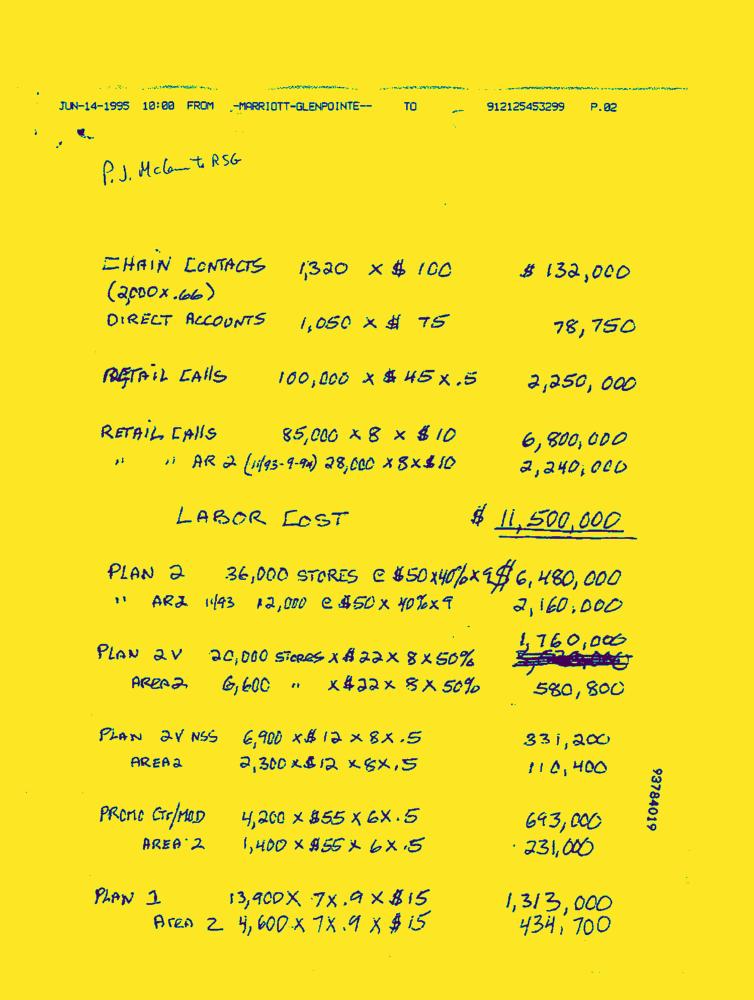 JUN-14-1995 10:00 FROM -MARRIOTT-GLENPOINTE-- TO 912125453299 P.02
P.J. RSG
CHAIN CONTACTS 1,320 x $ 100 $ 132,000
(2,000x.66)
DIRECT ACCOUNTS 1,050 x $ 75 78,750
RETAIL CAlls 100,000 x $ 45 x .5 2,250,000
RETAIL CAlls 85,000 x 8 x $10 6,800,000
" " AR 2 (11/93-9-94) 28,000 x 8 x $10 2,240,000
LABOR COST $ 11,500,000
PLAN 2 36,000 STORES @ $50x40%x9 $6,480,000
" AR2 11/93 12,000 @ $50x 40%x9 2,160,000
1,760,000
PLAN 2V 20,000 STORES x $22 x 8 x 50%
AREA2 6,600 " x $22 x 8 x 50% 580,800
PLAN 2V NSS 6,900 x $12 x 8x .5 331,200
AREA2 2,300 x $12 x 8x .5 110,400
PROMO Ctr/MOD 4,200 x $55 x 6x .5 693,000
AREA 2 1,400 x $55 x 6x .5 231,000
PLAN 1 13,900x 7x .9 x $15 1,313,000
AREA 2 4,600 x 7x .9 x $15 434,700
93784019